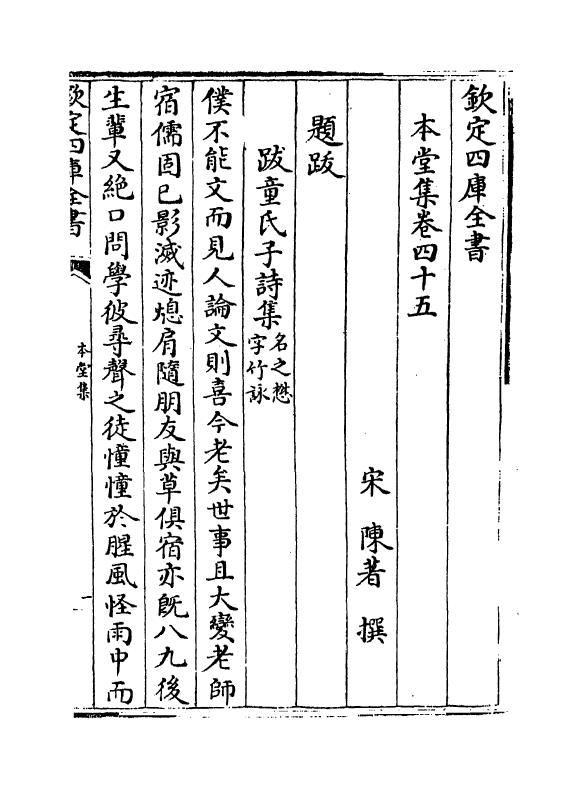 欽定四庫全書
本堂集卷四十五
宋 陳著 撰
題跋
跋童氏子詩集名之懋
字竹詠
僕不能文而見人論文則喜今老矣世事且大變老師
宿儒固已影滅迹熄肩隨朋友與草俱宿亦既八九後
生輩又絶口問學彼尋聲之徒憧憧於腥風怪雨中而
欽定四庫全書
本堂集
一